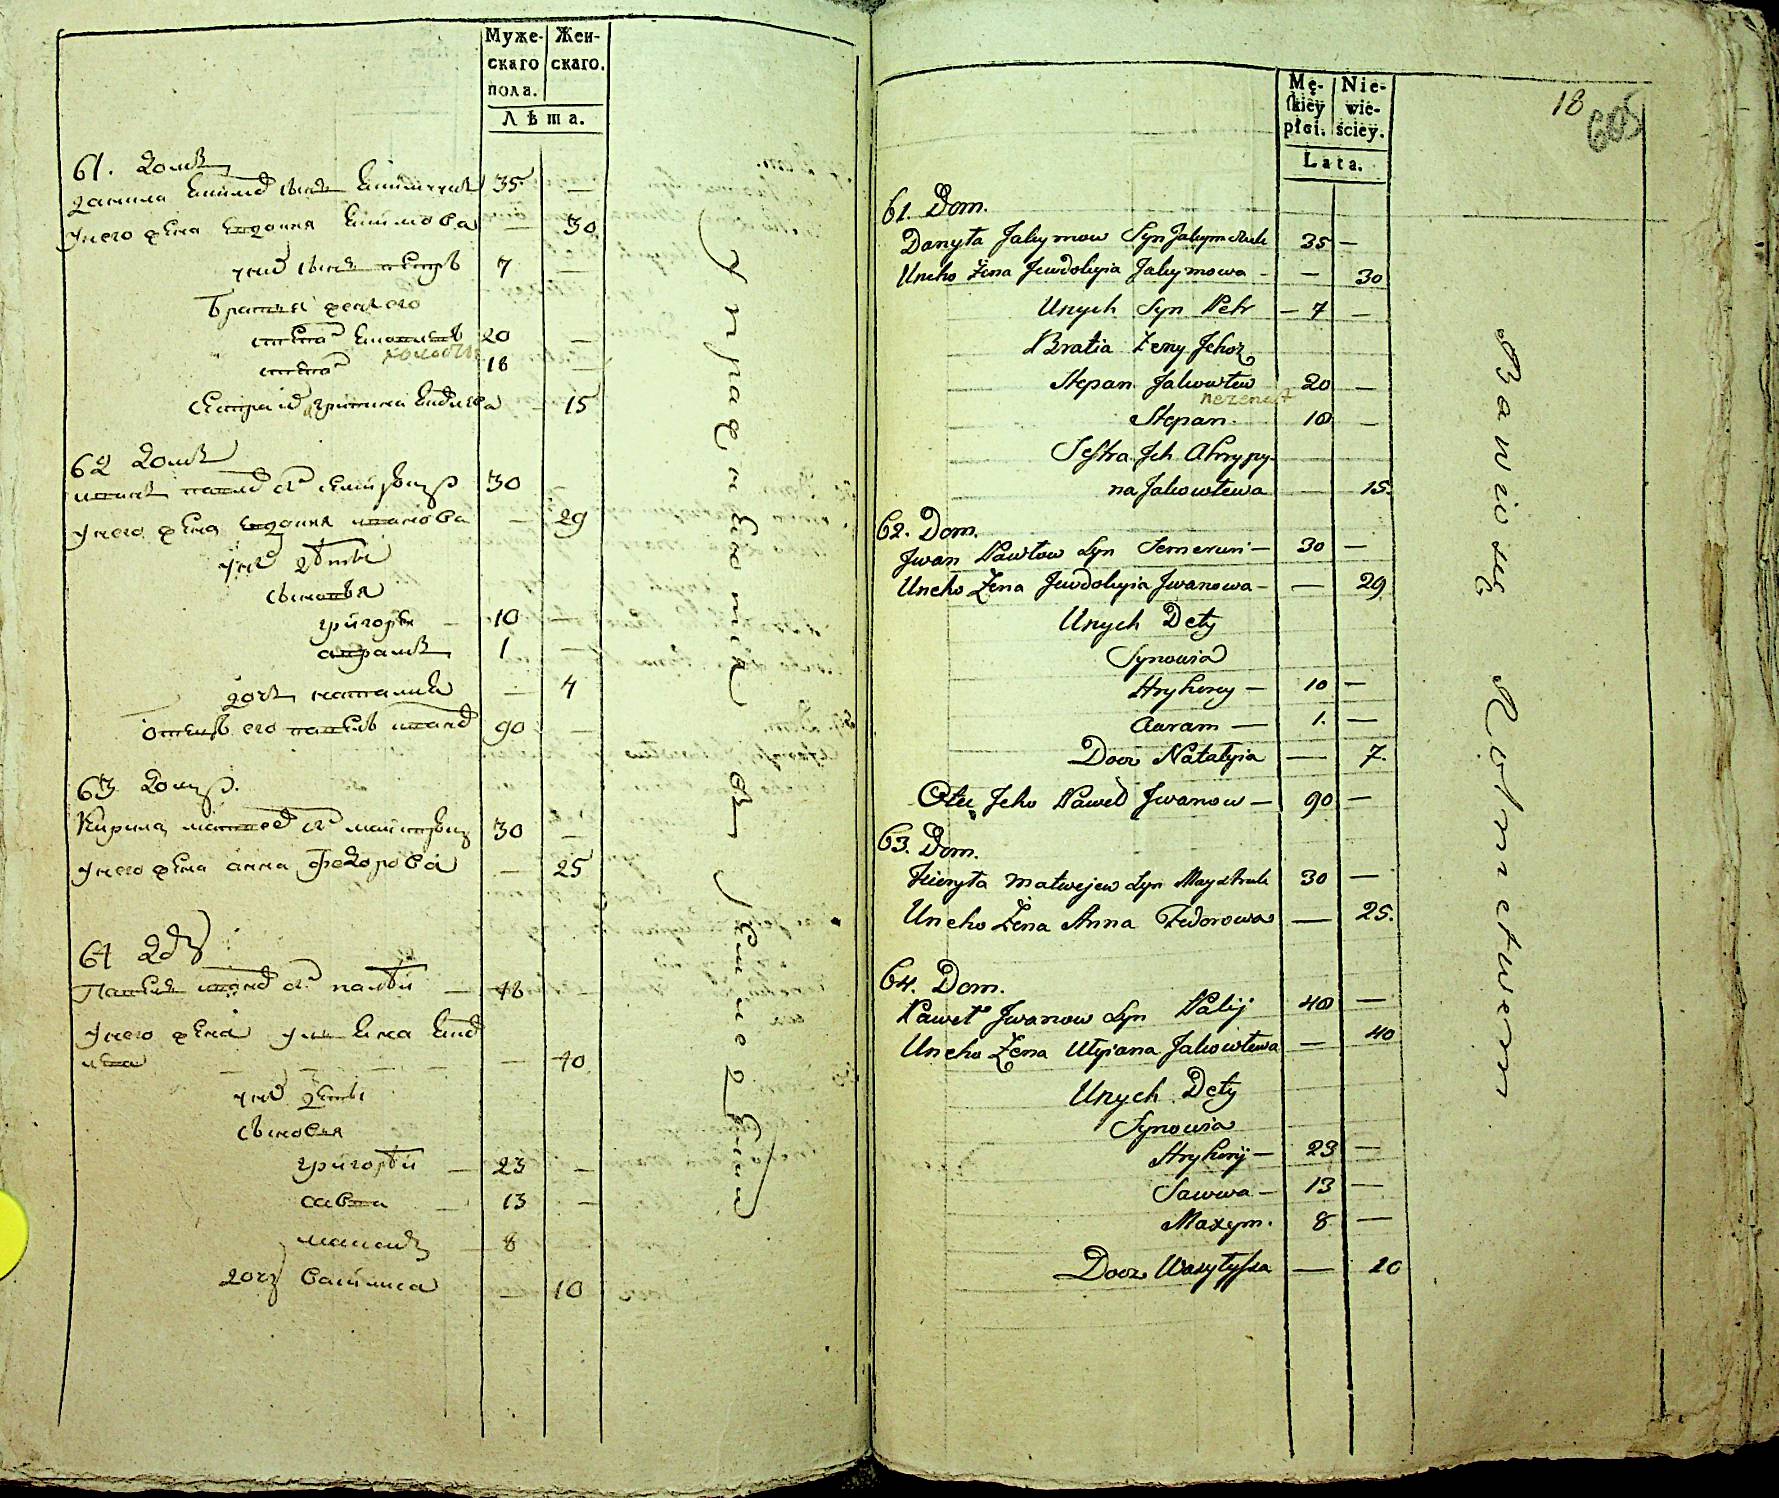 Муже-
скаго
пола.
Жен-
скаго.
Лѣта.
61. Домъ
35 —
У него жена Евдокия Якимова — 30
у них сынъ Петръ 7 —
Братья жены его
Степан Яковлевъ 20 —
холостъ
Степан 18 —
Сестра их Агрипина Яковлева — 15
62 Домъ
30 —
У него жена Евдокия Иванова — 29
у них дѣти
сыновья
Григорий — 10 —
Аврамъ 1 —
дочь Наталия — 7
Отецъ его Павелъ Иванов 90 —
63 Домъ.
Кирила Матвеев 30 —
У него жена Анна Федорова — 25
64 Домъ
Павелъ Иванов с. Палѣй — 48 —
У него жена Улияна Яков
лева — 40
у них дѣти
сыновья
Григорѣй — 23 —
Савва — 13 —
Максимъ — 8
дочь Василиса — 10
Упражняются въ
Земледѣлии
18
605
Mę-
skiey
płci.
Nie-
wie-
ściey.
Lata.
61. Dom.
Danyła Jakymow Syn Jakymczuk 35 —
Uneho Żena Jewdokyia Jakymowa — — 30
Unych Syn Petr — 7 —
Bratia Żeny Jehoż
Stepan Jakowlew 20 —
neżenat
Stepan. 18 —
Sestra Jch Ahrypy-
na Jakowlewa — 15.
62. Dom.
Jwan Pawłow Syn Semerun — 30 —
Uneho Żena Jewdokyia Jwanowa — — 29
Unych Dety
Synowia
Hryhorey — 10 —
Auram — 1. —
Docz Natalyia — 7.
Otec Jeho Paweł Jwanow — 90 —
63. Dom.
Kieryła Matwejew Syn Maystruk 30 —
Uneho Żena Anna Fedorowa — 25.
64. Dom.
Paweł Jwanow Syn Palij 48 —
Uneho Żena Ulyiana Jakowlewa — 40
Unych Dety
Synowia
Hryhorij — 23 —
Sawwa — 13 —
Maxym. 8 —
Docz Wasylyssa — 10
Bawiąsię Rolnictwem